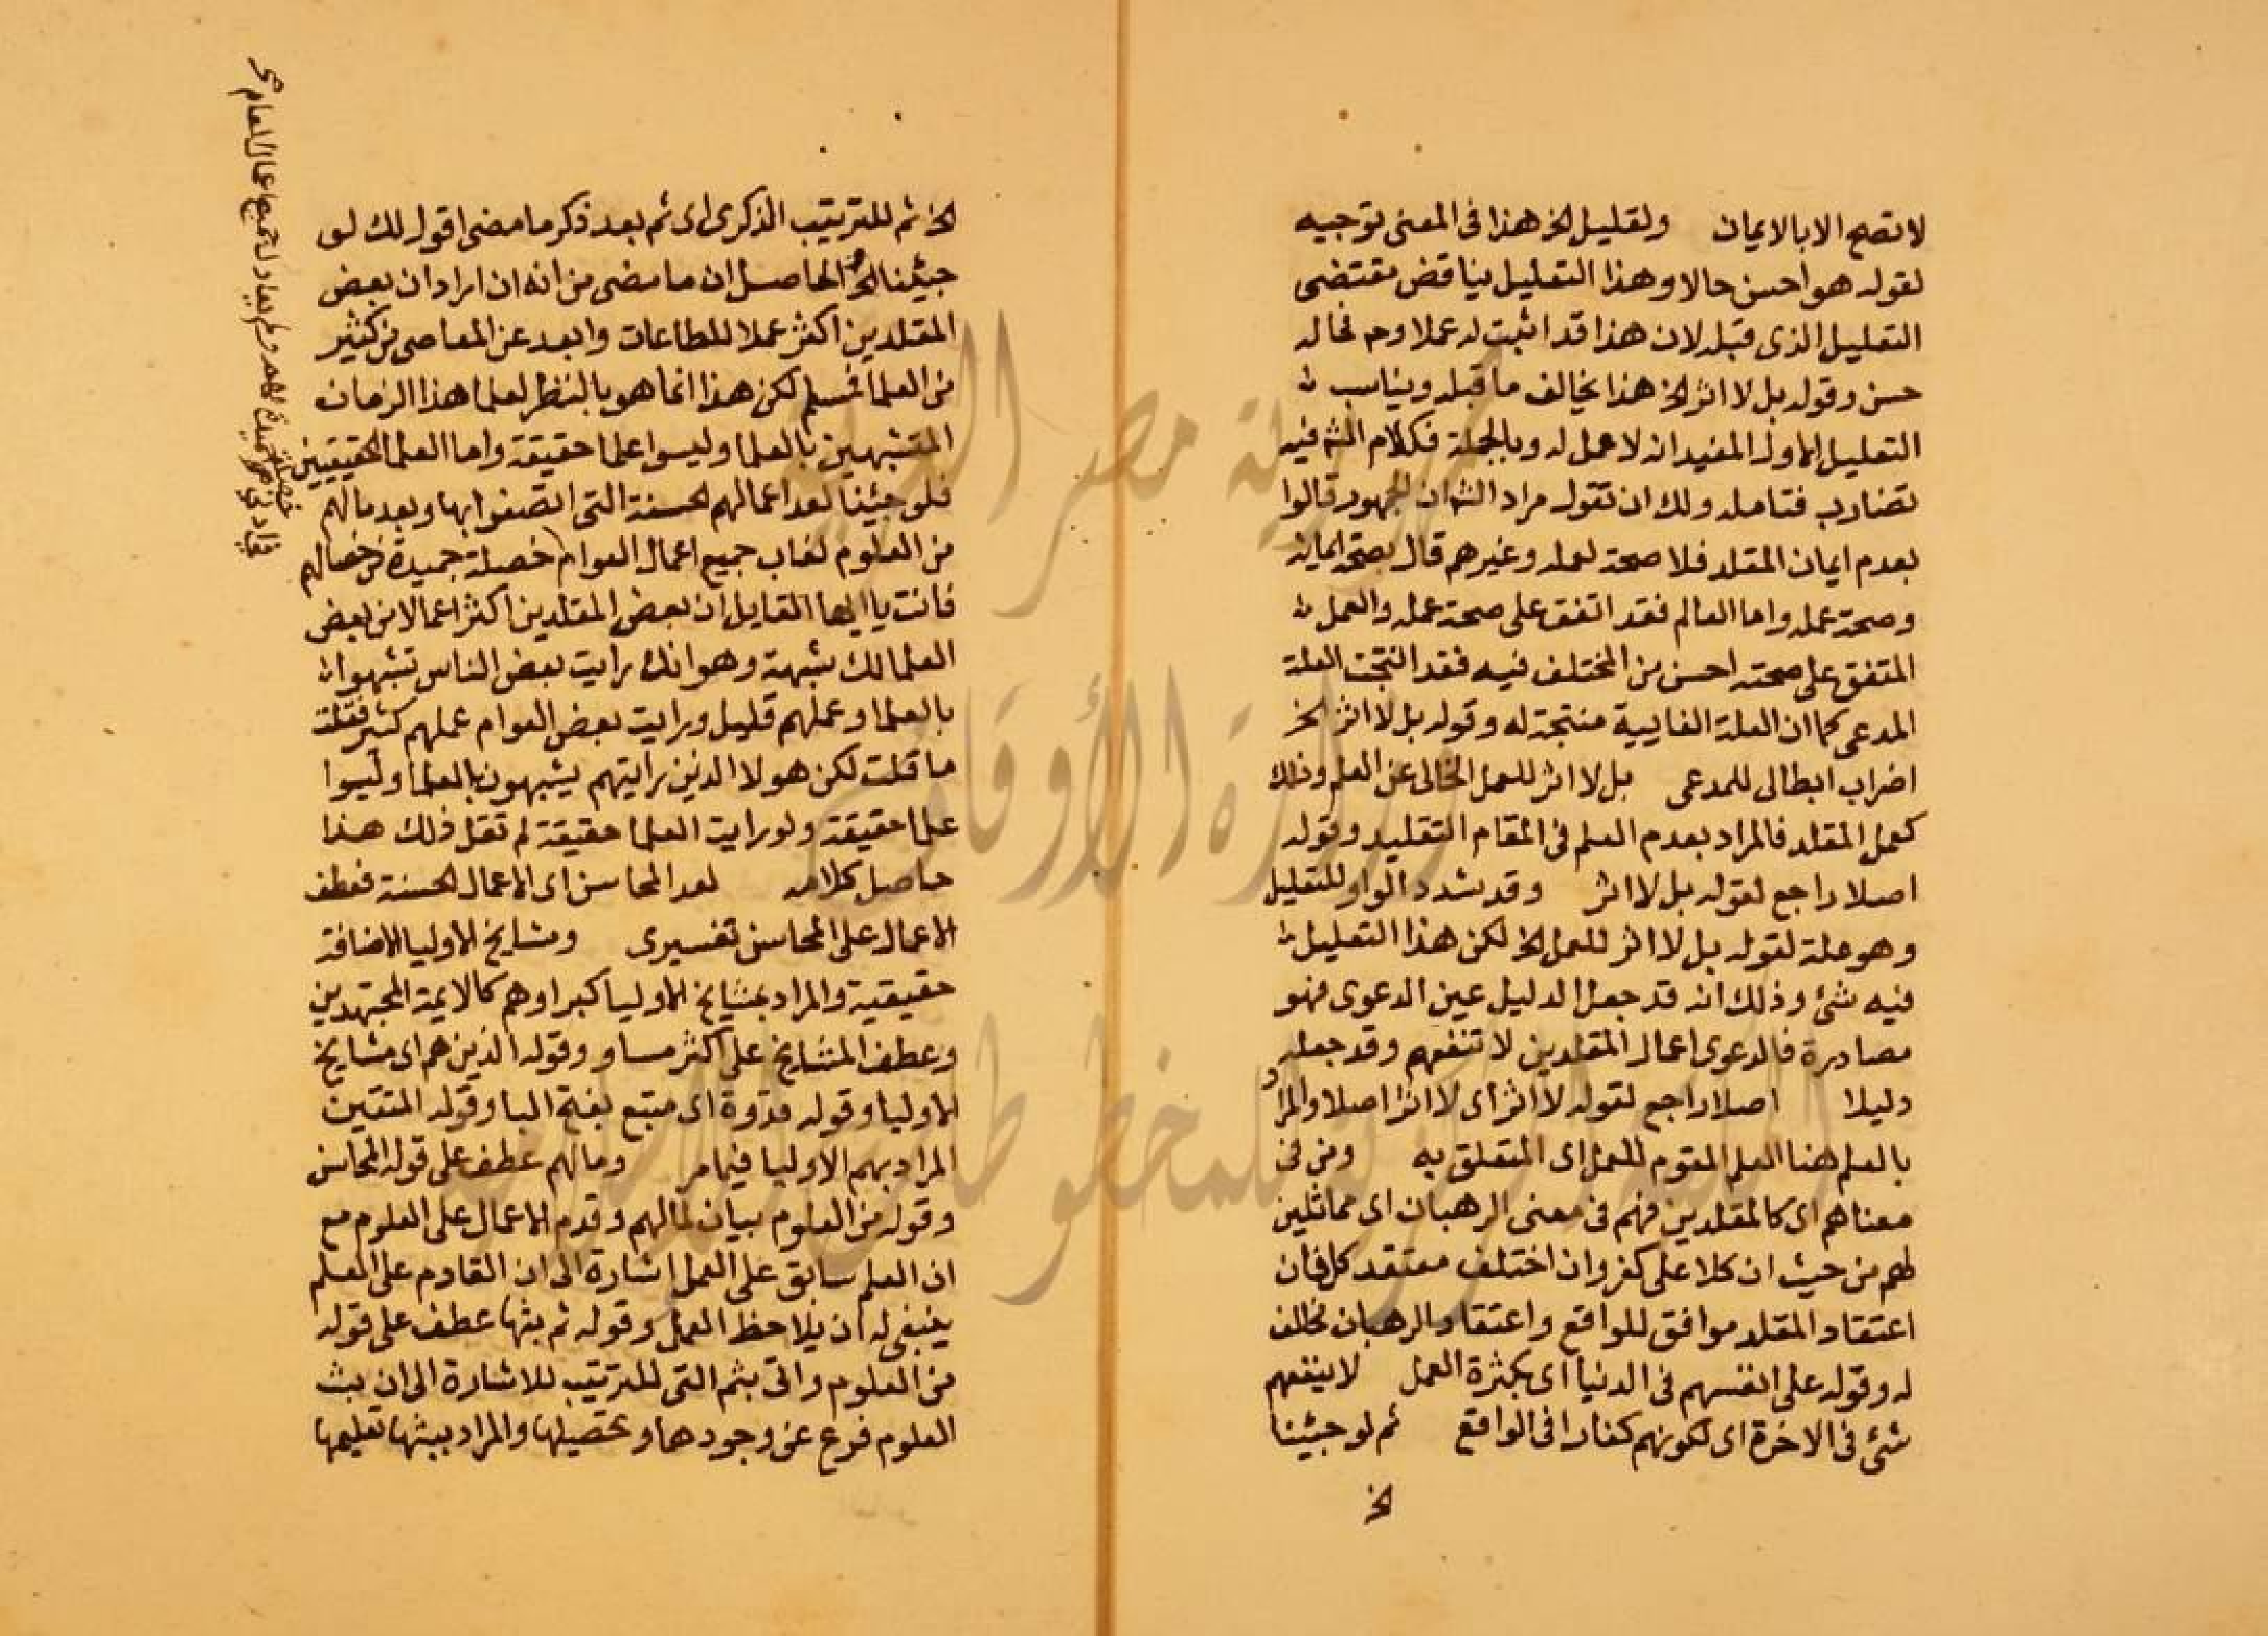 لا تصح الا بالايمان ولقليل الخ هذا فى المعنى توجيه
لقوله هو احسن حالا وهذا التعليل يناقض مقتضى
التعليل الذى قبله لان هذا قد اثبت له عملا وح فحاله
حسن وقوله بل لا اثر الخ هذا يخالف ما قبله ويناسب
التعليل الاول المفيد انه لا عمل له وبالجملة فكلام الش فيه
تضارب فتامله ولك ان تقول مراد الش ان الجمهور قالوا
بعدم ايمان المقلد فلا صحة لعمله وغيرهم قال بصحة ايمانه
وصحة عمله واما العالم فقد اتفق على صحة عمله والعمل
المتفق على صحته احسن من المختلف فيه فقد انتجت العلة
المدعى كما ان العلة الغايبية منتجة له وقوله بل لا اثر الخ
اضراب ابطالى للمدعى بل لا اثر للعمل الخالى عن العلم وذلك
كعمل المقلد فالمراد بعدم العلم فى المقام التقليد وقوله
اصلا راجع لقوله بل لا اثر وقد شدد الواو للتعليل
وهو علة لقوله بل لا اثر للعمل الخ لكن هذا التعليل
فيه شئ وذلك انه قد جعل الدليل عين الدعوى فهو
مصادرة فالدعوى اعمال المقلدين لا تنفعهم وقد جعله
دليلا اصلا راجع لقوله لا اثر اى لا اثرا اصلا والمراد
بالعلم هنا العلم المقوم للعمل اى المتعلق به ومن فى
معناهم اى كالمقلدين فهم فى معنى الرهبان اى مماثلين
لهم من حيث ان كلا على كفر وان اختلف معتقد كل فان
اعتقاد المقلد موافق للواقع واعتقاد الرهبان مخالف
له وقوله على انفسهم فى الدنيا اى بكثرة العمل لا ينفعهم
شئ فى الاخرة اى لكونهم كفارا فى الواقع ثم لو جيئنا
الخ
الخ ثم للترتيب الذكرى اى ثم بعد ذكر ما مضى اقول لك لو
جيئنا الخ الحاصل ان ما مضى من انه ان اراد ان بعض
المقلدين اكثر عملا للطاعات وابعد عن المعاصى من كثير
من العلما فمسلم لكن هذا انما هو بالنظر لعلما هذا الزمان
المتشبهين بالعلما وليسوا علما حقيقة واما العلما الحقيقيين
فلو جيئنا لعد اعمالهم الحسنة التى اتصفوا بها وبعد مالهم
من العلوم لغاب جميع اعمال العوام خصلة حميدة من خصالهم
فانت يا ايها القايل ان بعض المقلدين اكثر اعمالا من بعض
العلما لك شبهة وهو انك رايت بعض الناس تشبهوا
بالعلما وعملهم قليل ورايت بعض العوام عملهم كثير فقلت
ما قلت لكن هولا الدين رايتهم يشبهون بالعلما وليسوا
علما حقيقة ولو رايت العلما حقيقة لم تقل ذلك هذا
حاصل كلامه لعد المحاسن اى الاعمال الحسنة فعطف
الاعمال على المحاسن تفسيرى ومشايخ الاوليا الاضافة
حقيقية والمراد بمشايخ الاوليا كبراوهم كالايمة المجتهدين
وعطف المشايخ على اكثر مساو وقوله الذين هم اى مشايخ
الاوليا وقوله قدوة اى متبع بفتح البا وقوله المتقين
المراد بهم الاوليا فيما مر ومالهم عطف على قوله المحاسن
وقوله من العلوم بيان لمالهم وقدم الاعمال على العلوم مع
ان العلم سابق على العمل اشارة الى ان القادم على العلم
ينبغى له ان يلاحظ العمل وقوله ثم بثها عطف على قوله
من العلوم واتى بثم التى للترتيب للاشارة الى ان بث
العلوم فرع عن وجودها وتحصيلها والمراد ببثها تعليمها